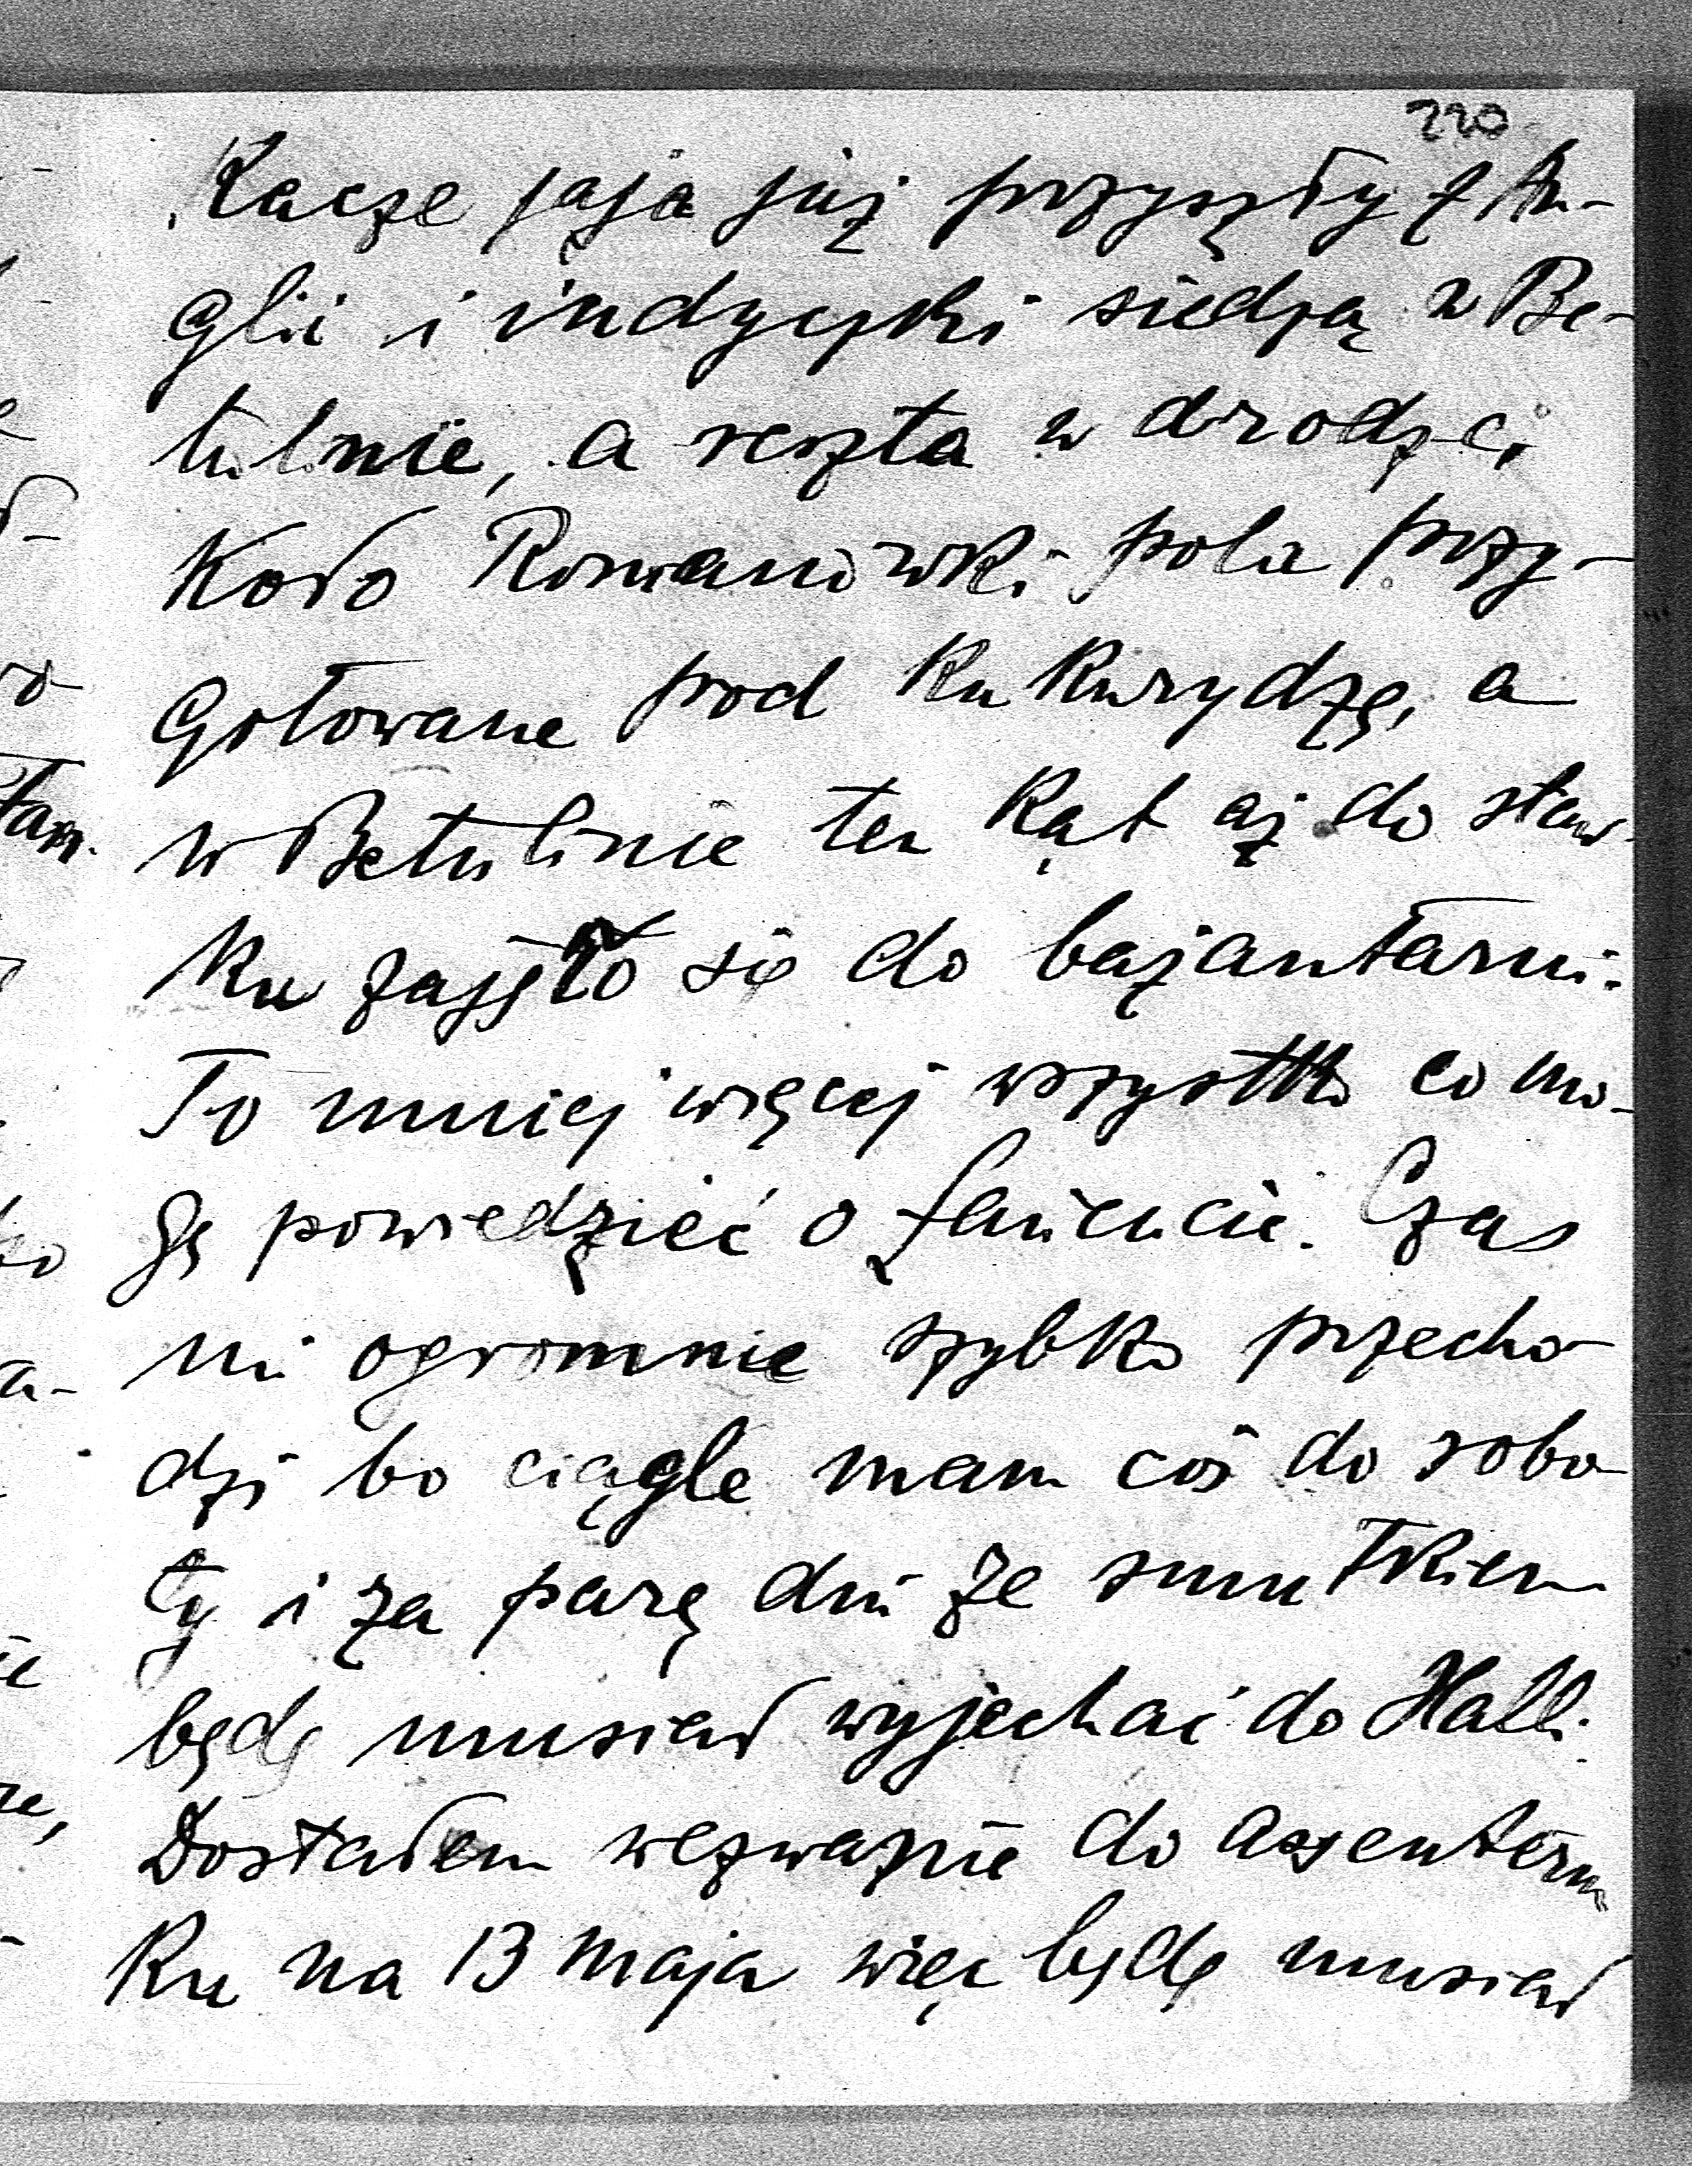 220
Kacze jaja już przyszły z An-
glii i indyczki siedzą w Be-
tulinie, a reszta w drodze.
Koło Romanówki pola przy-
gotowane pod kukurydzę, a
w Betulinie ten kąt aż do staw-
ku zajęło się do bażantarni.
To mniej więcej wszystko co mo-
gę powiedzieć o Łańcucie. Czas
mi ogromnie szybko przecho-
dzi bo ciągle mam coś do robo-
ty i za parę dni ze smutkiem
będę musiał wyjechać do Halli.
Dostałem wezwanie do assenterun-
ku na 13 maja więc będę musiał